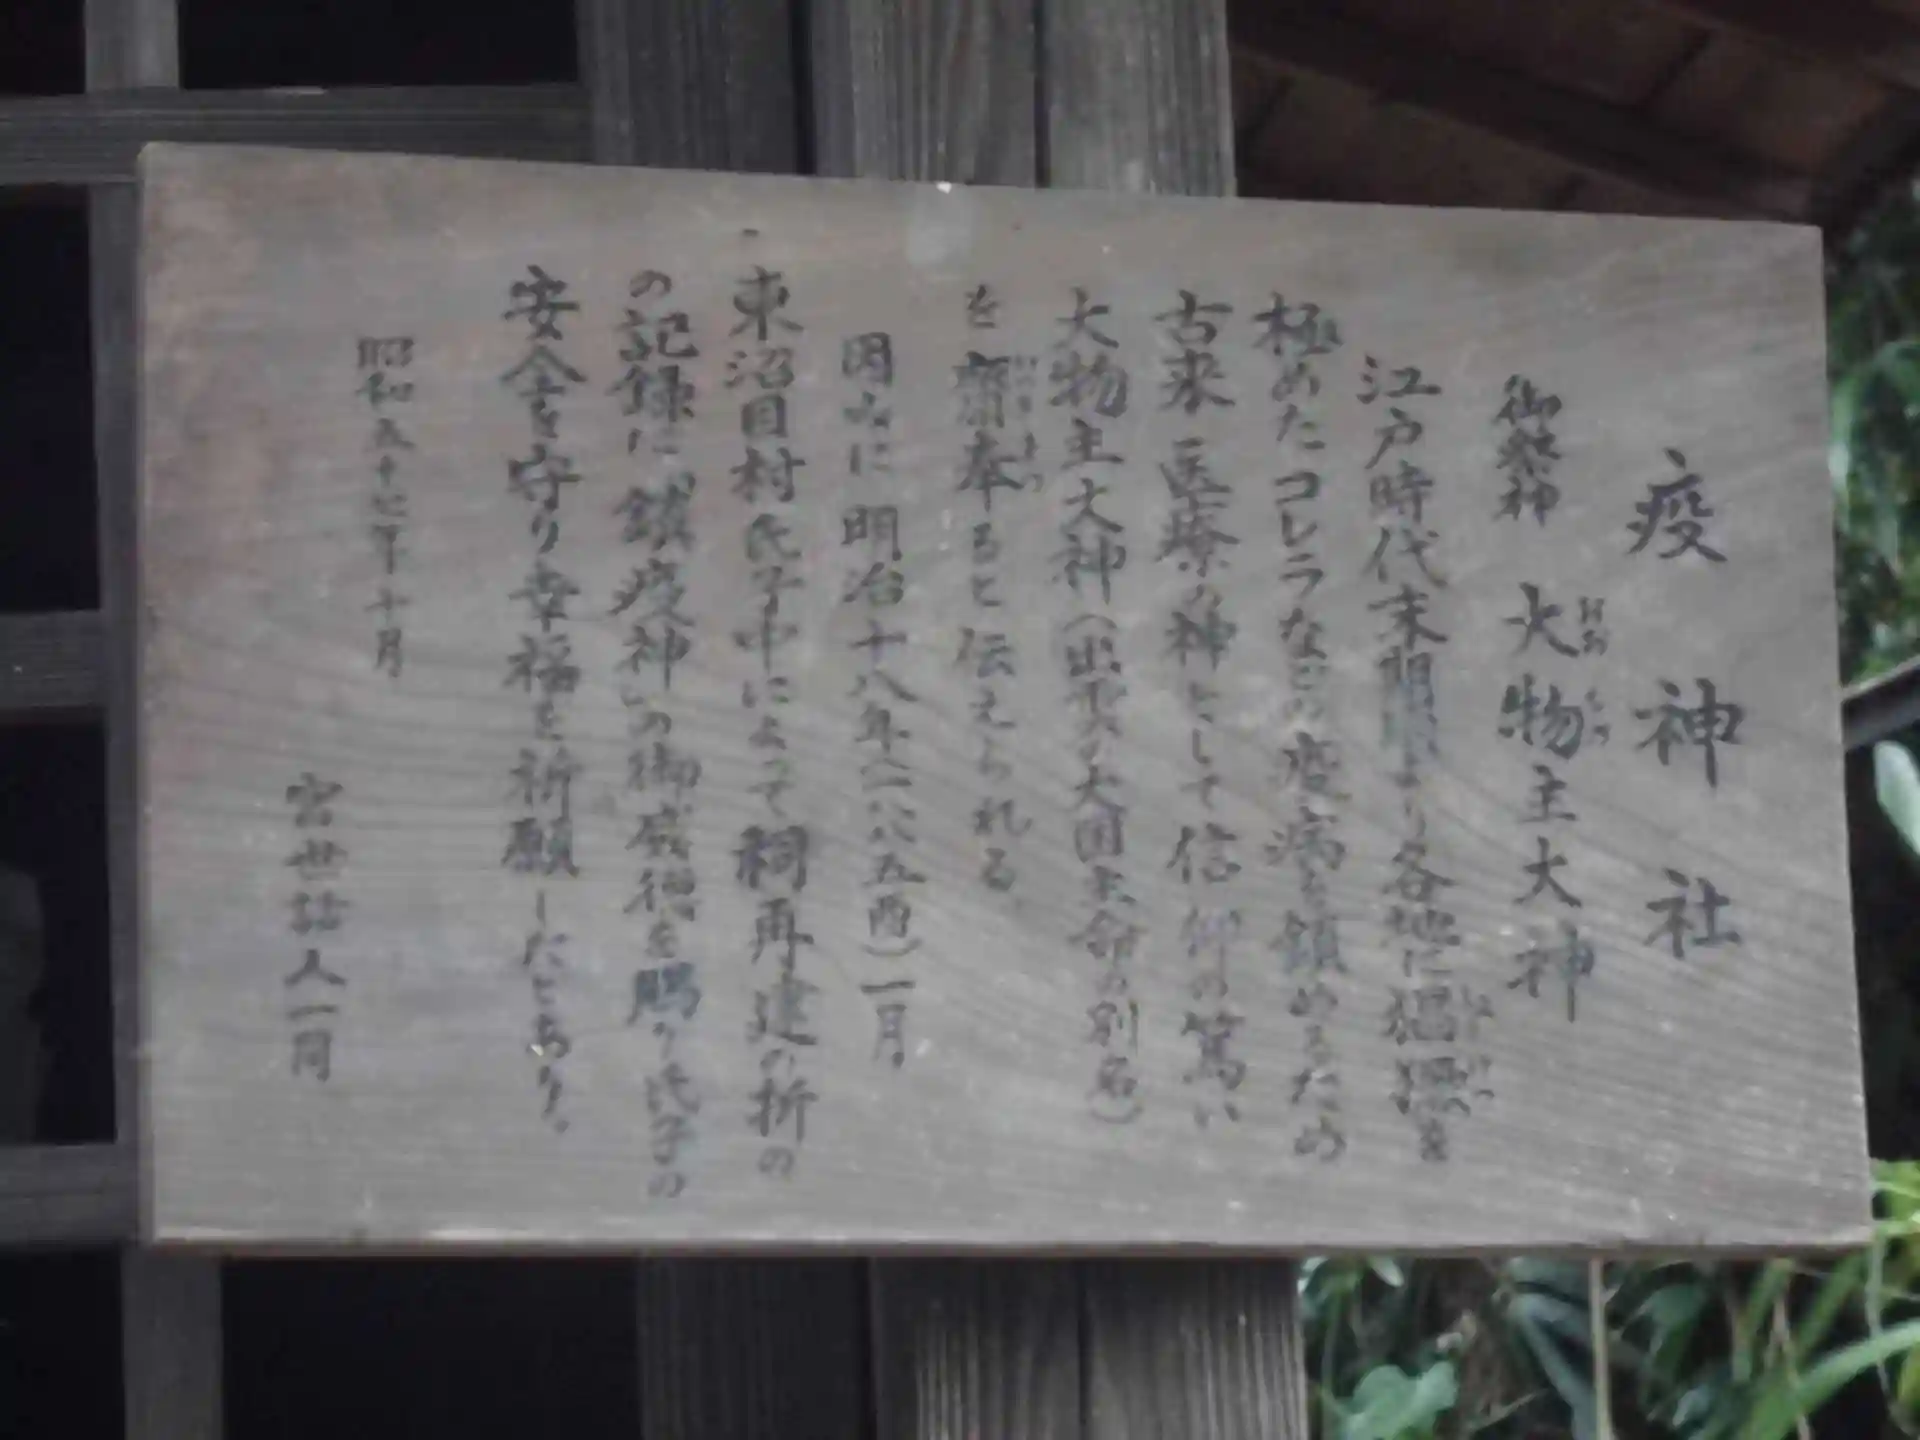 疫神社
御祭神 大物主大神
江戸時代末期頃より各地に猖獗を
極めたコレラなどの疫病を鎮めるため
古来医療の神として信仰の篤い
大物主大神(出雲の大国主命の別名)
を齋奉ると伝えられる。
因みに明治十八年(一八八五酉)一月。
東沼目村氏子中によって祠再建の折の
の記録に「鎮疫神」の御威徳を賜り氏子の
安全を守り幸福を祈願したとあり。
昭和五十七年十月
宮世話人一同